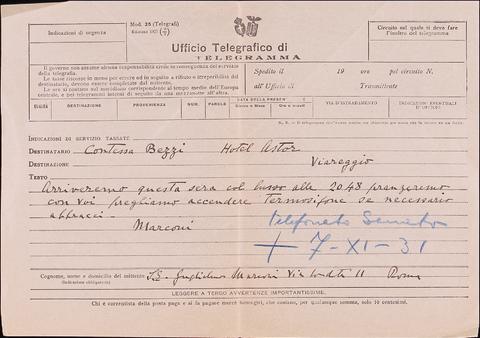 Indicazioni di urgenza
Mod. 25 (Telegrafi)
Circuito sul quale si deve fare
l'inoltro del telegramma
Ufficio Telegrafico di
TELEGRAMMA
Il governo non assume alcuna responsabilità civile in conseguenza del servizio
della telegrafia.
Le tasse riscosse in meno per errore od in seguito a rifiuto o irreperibilità del
destinatario, devono essere completate dal mittente.
Le ore si contano sul meridiano corrispondente al tempo medio dell'Europa
centrale, e pei telegrammi interni di seguito da una mezzanotte all'altra.
Spedito il 19 ore pel circuito N.
all'Ufficio di Trasmittente
Qualità DESTINAZIONE PROVENIENZA NUM. PAROLE DATA DELLA PRESENT. VIA D'ISTRADAMENTO INDICAZIONI EVENTUALI
Giorno e Mese Ore e minuti D'UFFICIO
INDICAZIONI DI SERVIZIO TASSATE
DESTINATARIO Contessa Bezzi Hotel Astor
DESTINAZIONE Viareggio
TESTO
Arriveremo questa sera col lusso alle 20.48 pranzeremo
con voi preghiamo accendere termosifone se necessario
abbracci -
Marconi
Telefonato Senato
+ 7-XI-31
Cognome, nome e domicilio del mittente S.E. Guglielmo Marconi Via Condotti 11 Roma
(Indicazione obbligatoria)
LEGGERE A TERGO AVVERTENZE IMPORTANTISSIME.
Chi è correntista della posta paga e si fa pagare mercè bancogiri, che costano, per qualunque somma, solo 10 centesimi.